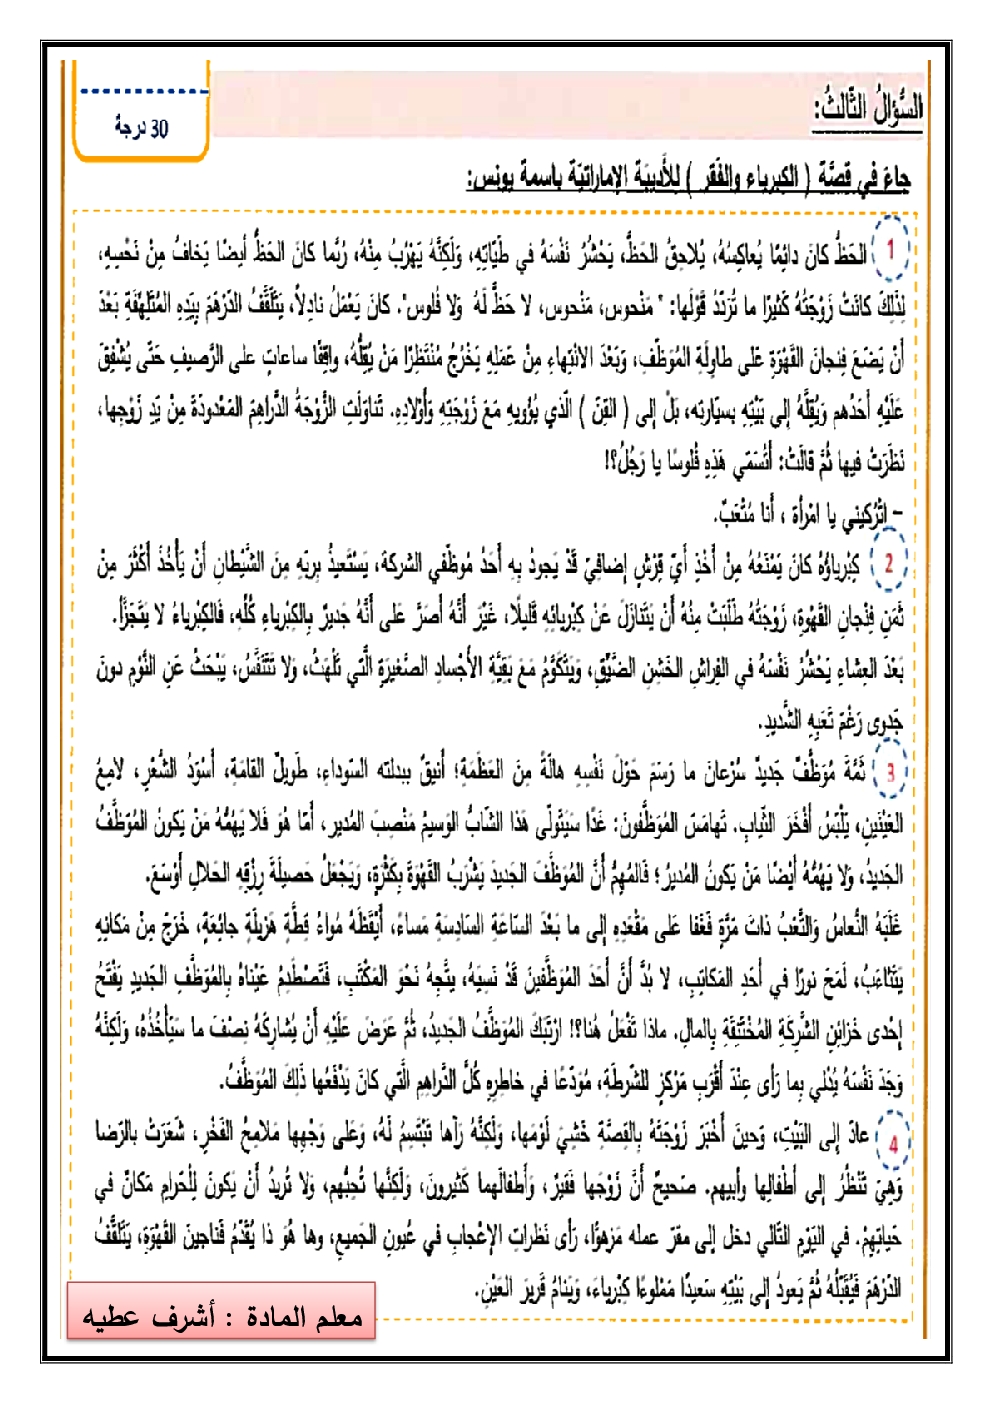 السُّؤالُ الثّالثُ:
30 درجة
جاءَ في قصّة ( الكبرياء والفقر ) للأديبة الإماراتيّة باسمة يونس:
1 الحَظُّ كانَ دائِمًا يُعاكِسُهُ، يُلاحِقُ الحَظَّ، يَحْشُرُ نَفْسَهُ في طَيّاتِهِ، وَلَكِنَّهُ يَهْرُبُ مِنْهُ، رُبَّما كانَ الحَظُّ أيضًا يَخافُ مِنْ نَحْسِهِ،
لِذَلِكَ كانَتْ زَوْجَتُهُ كَثيرًا ما تُرَدِّدُ قَوْلَها: " مَنْحوس، مَنْحوس، لا حَظَّ لَهُ وَلا فُلوس". كانَ يَعْمَلُ نادِلاً، يَتَلَقَّفُ الدِّرْهَمَ بِيَدِهِ المُتَلَهِّفَةِ بَعْدَ
أَنْ يَضَعَ فِنجانَ القَهْوَةِ عَلى طاوِلَةِ المُوَظَّفِ، وَبَعْدَ الانْتِهاءِ مِنْ عَمَلِهِ يَخْرُجُ مُنْتَظِرًا مَنْ يُقِلُّهُ، واقِفًا ساعاتٍ على الرَّصيفِ حَتّى يُشْفِقَ
عَلَيْهِ أَحَدُهم وَيُقِلَّهُ إلى بَيْتِهِ بسيّارَتِهِ، بَلْ إلى ( القِنِّ ) الّذي يُؤويهِ مَعَ زَوْجَتِهِ وَأَوْلادِهِ. تَناوَلَتِ الزَّوْجَةُ الدَّراهِمَ المَعْدودَةَ مِنْ يَدِ زَوْجِها،
نَظَرَتْ فيها ثُمَّ قالَتْ: أَتُسَمّي هَذِهِ فُلوسًا يا رَجُلُ؟!
– اتْرُكيني يا امْرأة ، أَنا مُتْعَبٌ.
2 كِبْرياؤُهُ كانَ يَمْنَعُهُ مِنْ أَخْذِ أَيِّ قِرْشٍ إضافِيٍّ قَدْ يَجودُ بِهِ أَحَدُ مُوظّفي الشركة، يَسْتَعيذُ بِرَبِّهِ مِنَ الشَّيْطانِ أَنْ يَأْخُذَ أَكْثَرَ مِنْ
ثَمَنِ فِنْجانِ القَهْوَةِ، زَوْجَتُهُ طَلَبَتْ مِنْهُ أَنْ يَتَنازَلَ عَنْ كِبْرِيائِهِ قَليلًا، غَيْرَ أَنَّهُ أَصَرَّ عَلى أَنَّهُ جَديرٌ بِالكِبْرِياءِ كُلِّهِ، فَالكِبْرِياءُ لا يَتَجَزَّأُ.
بَعْدَ العِشاءِ يَحْشُرُ نَفْسَهُ في الفِراشِ الخَشِنِ الضَّيِّقِ، وَيَتَكَوَّمُ مَعَ بَقِيَّةِ الأَجْسادِ الصَّغيرَةِ الَّتي تَلْهَثُ، وَلا تَتَنَفَّسُ، يَبْحَثُ عَنِ النَّوْمِ دونَ
جَدوى رَغْمَ تَعَبِهِ الشَّديدِ.
3 ثَمَّةَ مُوَظَّفٌ جَديدٌ سُرْعانَ ما رَسَمَ حَوْلَ نَفْسِهِ هالَةً مِنَ العَظَمَةِ؛ أَنيقٌ ببدلته السّوداءِ، طَويلُ القامَةِ، أَسْوَدُ الشَّعْرِ، لامِعُ
العَيْنَينِ، يَلْبَسُ أَفْخَرَ الثِّيابِ. تَهامَسَ المُوَظَّفونَ: غَدًا سَيَتَوَلّى هَذا الشّابُّ الوَسيمُ مَنْصِبَ المُدير، أَمّا هُوَ فَلا يَهُمُّهُ مَنْ يَكونُ المُوَظَّفُ
الجَديدُ، وَلا يَهُمُّهُ أيْضًا مَنْ يَكونُ المُديرُ؛ فَالمُهِمُّ أَنَّ المُوَظَّفَ الجَديدَ يَشْرَبُ القَهْوَةَ بِكَثْرَةٍ، وَيَجْعَلُ حَصيلَةَ رِزْقِهِ الحَلالِ أَوْسَعَ.
غَلَبَهُ النُّعاسُ وَالتَّعَبُ ذاتَ مَرَّةٍ فَغَفا عَلى مَقْعَدِهِ إلى ما بَعْدَ السّاعَةِ السّادِسَةِ مَساءً، أَيْقَظَهُ مُواءُ قِطَّةٍ هَزيلَةٍ جائِعَةٍ، خَرَجَ مِنْ مَكانِهِ
يَتَثاءَبُ، لَمَحَ نورًا في أَحَدِ المَكاتِبِ، لا بُدَّ أَنَّ أَحَدَ المُوَظَّفينَ قَدْ نَسِيَهُ، يتَّجِهُ نَحْوَ المَكْتَبِ، فَتَصْطَدِمُ عَيْناهُ بِالمُوَظَّفِ الجَديدِ يَفْتَحُ
إحْدى خَزائِنِ الشَّرِكَةِ المُخْتَنِقَةِ بِالمالِ. ماذا تَفْعَلُ هُنا؟! ارْتَبَكَ المُوَظَّفُ الجَديدُ، ثُمَّ عَرَضَ عَلَيْهِ أَنْ يُشارِكَهُ نِصْفَ ما سَيَأْخُذُهُ، وَلَكِنَّهُ
وَجَدَ نَفْسَهُ يُدْلي بِما رَأى عِنْدَ أَقْرَبِ مَرْكَزٍ للشّرطَةِ، مُوَدِّعًا في خاطِرِهِ كُلَّ الدَّراهِمِ الَّتي كانَ يَدْفَعُها ذَلِكَ المُوَظَّفُ.
4 عادَ إلى البَيْتِ، وَحينَ أَخْبَرَ زَوْجَتَهُ بِالقِصَّةِ خَشِيَ لَوْمَها، وَلَكِنَّهُ رَآها تَبْتَسِمُ لَهُ، وَعَلى وَجْهِها مَلامِحُ الفَخْرِ، شَعَرَتْ بِالرِّضا
وَهِيَ تَنْظُرُ إلى أَطْفالِها وأبيهم. صَحيحٌ أَنَّ زَوْجَها فَقيرٌ، وَأَطْفالَهما كَثيرونَ، وَلَكِنَّها تُحِبُّهم، وَلا تُريدُ أَنْ يَكونَ لِلْحَرامِ مَكانٌ في
حَياتِهِمْ. في اليَوْمِ التّالي دخل إلى مقرّ عمله مَزهوًّا، رَأى نَظَراتِ الإعْجابِ في عُيونِ الجَميعِ، وها هُوَ ذا يُقَدِّمُ فَناجينَ القَهْوَةِ، يَتَلَقَّفُ
الدِّرْهَمَ فَيُقَبِّلُهُ ثُمَّ يَعودُ إلى بَيْتِهِ سَعيدًا مَمْلوءًا كِبْرِياءً، وَيَنامُ قَريرَ العَيْنِ.
معلم المادة : أشرف عطيه